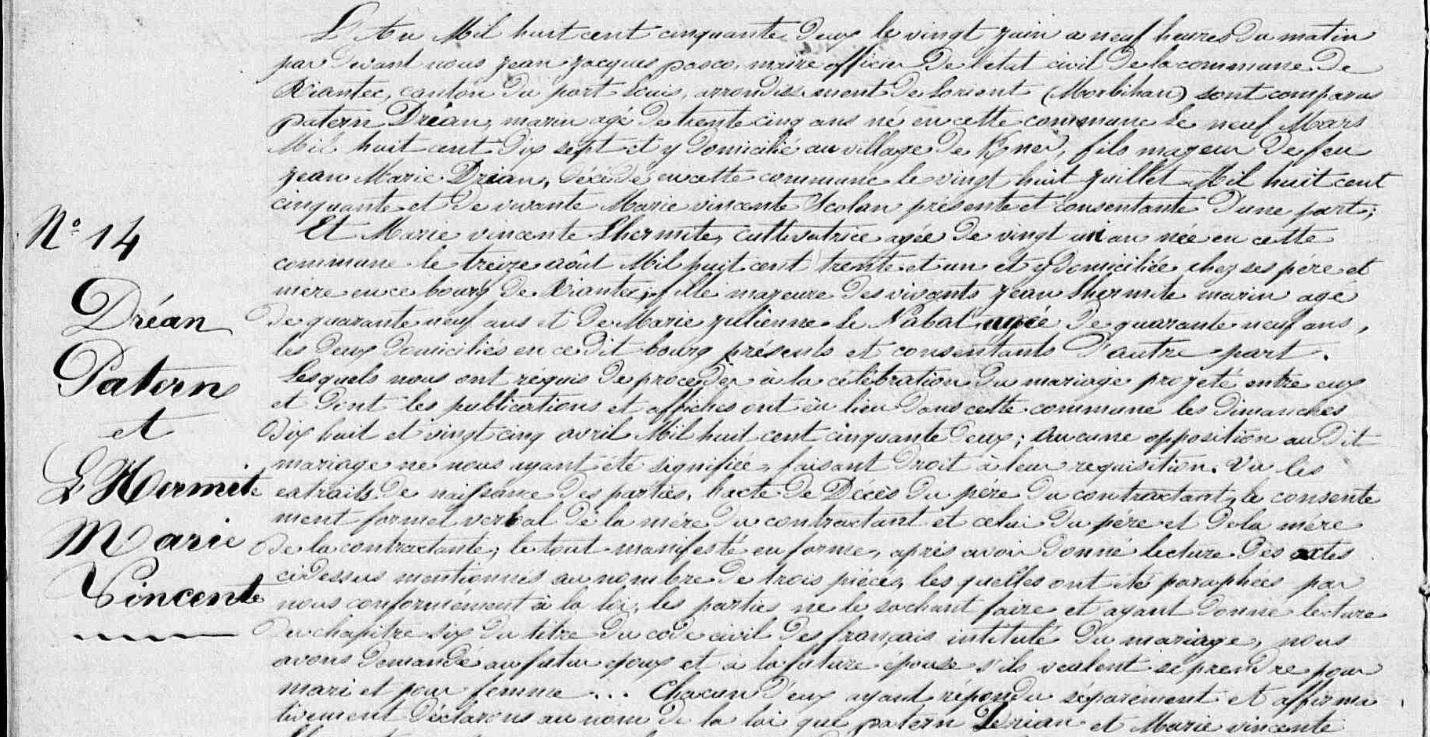 N° 14
Dréan
Patern
et
L'Hermite
Marie
Vincente
L'An Mil huit cent cinquante deux le vingt juin a neuf heures du matin
par devant nous jean jacques pasco, maire officier de l'état civil de la commune de
Riantec, canton du port Louis, arrondissement de Lorient (Morbihan) sont comparus
patern Dréan, marin agé de trente cinq ans né en cette commune le neuf Mars
Mil huit cent dix sept et y domicilié au village de Kner, fils majeur de feu
jean Marie Dréan, décédé en cette commune le vingt huit juillet Mil huit cent
cinquante et de vivante Marie vincente Scolan présente et consentante d'une part;
Et Marie vincente Lhermite, cultivatrice agée de vingt un an née en cette
commune le treize août Mil huit cent trente et un et y domiciliée chez ses père et
mère en ce bourg de Riantec, fille majeure des vivants jean Lhermite marin agé
de quarante neuf ans et de Marie julienne Le Nabat agée de quarante neuf ans,
les deux domiciliés en ce dit bourg présents et consentants d'autre part.
Lesquels nous ont réquis de proceder à la célébration du mariage projeté entre eux
et dont les publications et affiches ont eu lieu dans cette commune les dimanches
dix huit et vingt cinq avril Mil huit cent cinquante deux; Aucune opposition au dit
mariage ne nous ayant été signifiée, faisant droit à leur requisition. Vu les
extraits de naissance des parties, l'acte de Décès du père du contractant, le consente
ment formel verbal de la mère du contractant et celui du père et de la mère
de la contractante, le tout manifesté en forme, après avoir donné lecture des actes
cidessus mentionnés au nombre de trois pièces, les quelles ont été paraphées par
nous conformément à la loi, les parties ne le sachant faire et ayant donné lecture
du chapitre six du titre du code civil des français intitulé du mariage, nous
avons demandé au futur époux et à la future épouse s'ils veulent se prendre pour
mari et pour femme... Chacun d'eux ayant répondu séparément et affirma
tivement déclarons au nom de la loi que patern Drian et Marie vincente